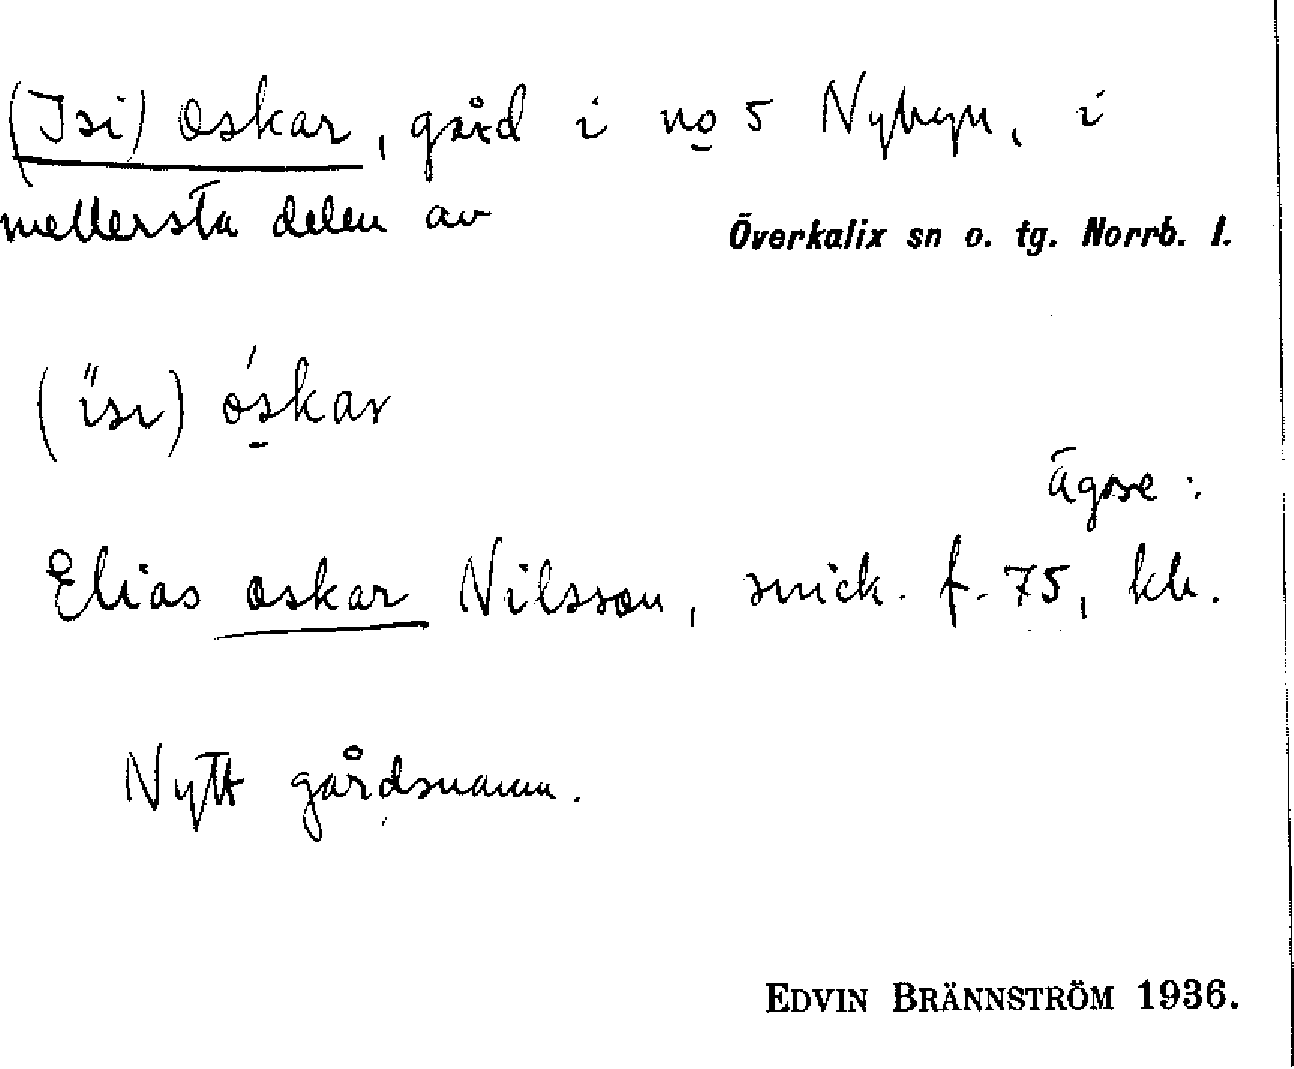 (Isi) Oskar, gård i no 5 Nybyn, i
mellersta delen av
Överkalix sn o. tg. Norrb. l.
(ïsı) óskar
ägare:
Elias Oskar Nilsson, snick. f. 75, kh.
Nytt gårdsnamn.
EDVIN BRÄNNSTRÖM 1936.